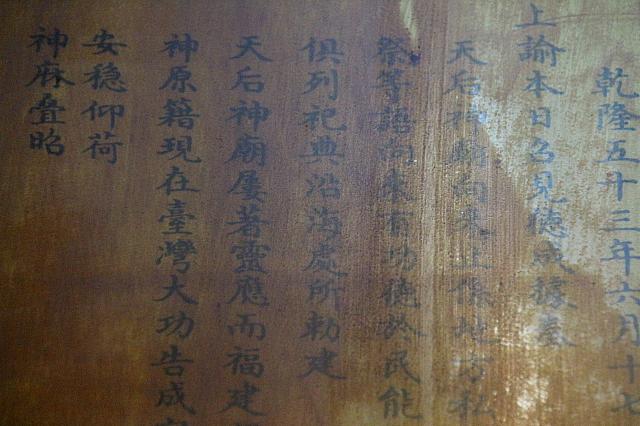 乾隆五十三年六月十七
上諭本日召見德成據奏
天后神廟向來止係地方私
祭等語向來有功德於民能
俱列祀典沿海處所勅建
天后神廟屢著靈應而福建
神原籍現在臺灣大功告成
安穩仰荷
神庥叠昭